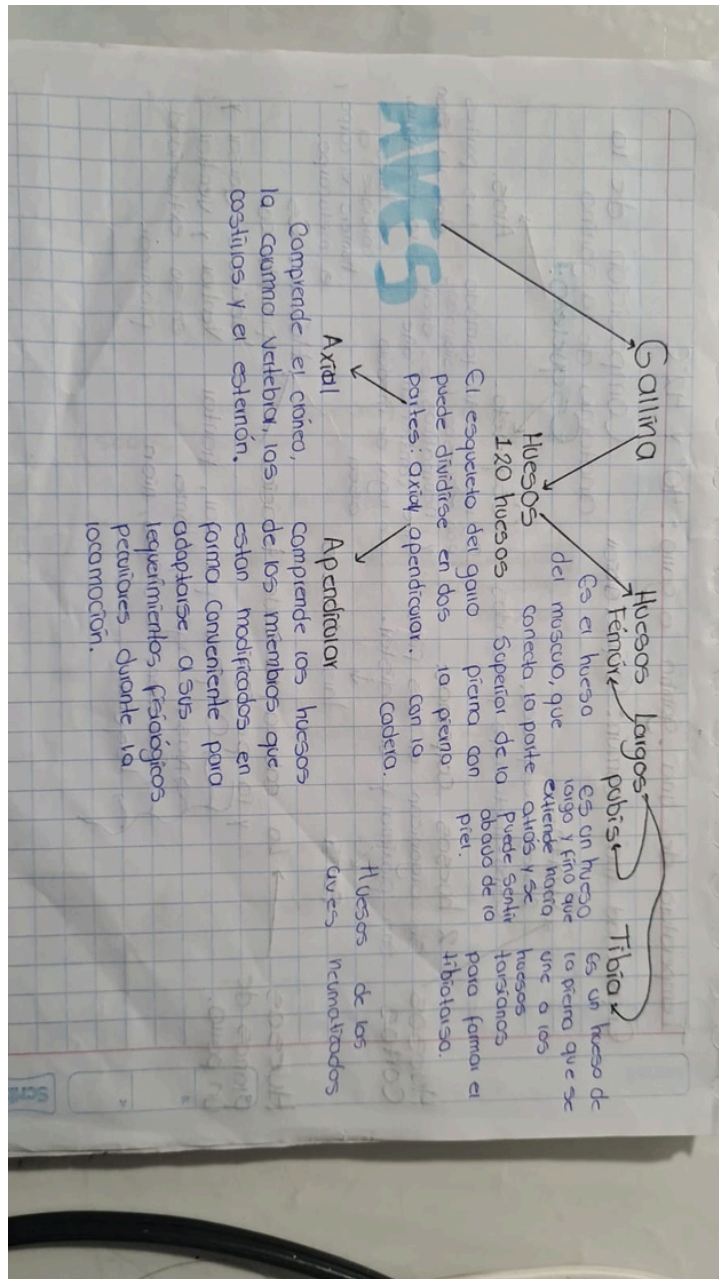 AVES
Gallina
Huesos
120 huesos
El esqueleto del gallo
puede dividirse en dos
partes: axial y apendicular.
Axial
Comprende el cráneo,
la columna vertebral, las
costillas y el esternón.
Apendicular
comprende los huesos
de los miembros que
estan modificados en
forma conveniente para
adaptarse a sus
requerimientos fisiológicos
peculiares durante la
locomoción.
Huesos largos
Fémur
Es el hueso
del musculo, que
conecta la parte
Superior de la
pierna con
la pierna
con la
cadera.
pubis
Es un hueso
largo y fino que
extiende hacia
atrás y se
puede sentir
abajo de la
piel.
Tibia
Es un hueso de
la pierna que se
une a los
huesos
tarsianos
para formar el
tibiotarso.
Huesos de las
aves neumatizados